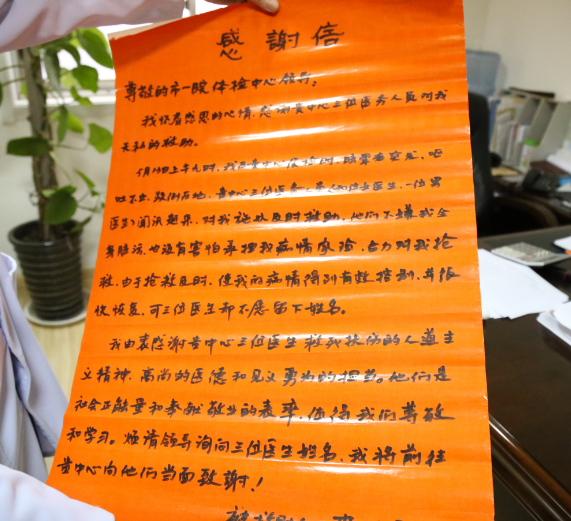 感謝信
尊敬的市一院体检中心领导。
我怀着感恩的心情，感谢贵中心三位医务人员对我
无私的救助。
上午九时，我在贵中心体检时，突发，呕
吐不止，跌倒在地，贵中心三位医务
医生）闻讯赶来，对我施以及时救助，他们不嫌我全
身脏污，也没有害怕承担我病情风险，全力对我抢
救，由于抢救及时，使我的病情得到有效控制，并很
快恢复，可三位医生却不愿留下姓名。
我由衷感谢贵中心三位医生救死扶伤的人道主
义精神，高尚的医德和见义勇为的担当。他们是
社会正能量和奉献敬业的表率，值得我们尊敬
和学习。烦请领导询问三位医生姓名，我将前往
贵中心向他们当面致谢！